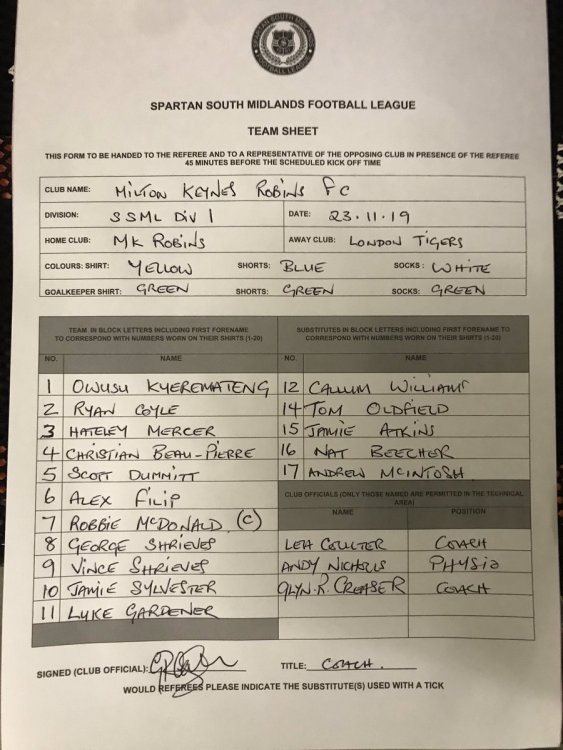 SPARTAN SOUTH MIDLANDS
FOOTBALL LEAGUE
SPARTAN SOUTH MIDLANDS FOOTBALL LEAGUE
TEAM SHEET
THIS FORM TO BE HANDED TO THE REFEREE AND TO A REPRESENTATIVE OF THE OPPOSING CLUB IN PRESENCE OF THE REFEREE
45 MINUTES BEFORE THE SCHEDULED KICK OFF TIME
CLUB NAME: MILTON KEYNES ROBINS FC
DIVISION: SSML DIV 1 DATE: 23.11.19
HOME CLUB: MK ROBINS AWAY CLUB: LONDON TIGERS
COLOURS: SHIRT: YELLOW SHORTS: BLUE SOCKS: WHITE
GOALKEEPER SHIRT: GREEN SHORTS: GREEN SOCKS: GREEN
TEAM IN BLOCK LETTERS INCLUDING FIRST FORENAME
TO CORRESPOND WITH NUMBERS WORN ON THEIR SHIRTS (1-20)
NO. NAME
1 OWUSU KYEREMATENG
2 RYAN COYLE
3 HATELEY MERCER
4 CHRISTIAN BEAU-PIERRE
5 SCOTT DUMMITT
6 ALEX FILIP
7 ROBBIE McDONALD (C)
8 GEORGE SHRIEVES
9 VINCE SHRIEVES
10 JAMIE SYLVESTER
11 LUKE GARDENER
SUBSTITUTES IN BLOCK LETTERS INCLUDING FIRST FORENAME TO
CORRESPOND WITH NUMBERS WORN ON THEIR SHIRTS (1-20)
NO. NAME
12 CALLUM WILLIAMS
14 TOM OLDFIELD
15 JAMIE ATKINS
16 NAT BEECHER
17 ANDREW MCINTOSH
CLUB OFFICIALS (ONLY THOSE NAMED ARE PERMITTED IN THE TECHNICAL
AREA)
NAME POSITION
COULTER COACH
ANDY NICHOLLS PHYSIO
GLYN.R. CREASER COACH
SIGNED (CLUB OFFICIAL): TITLE: COACH.
WOULD REFEREES PLEASE INDICATE THE SUBSTITUTE(S) USED WITH A TICK